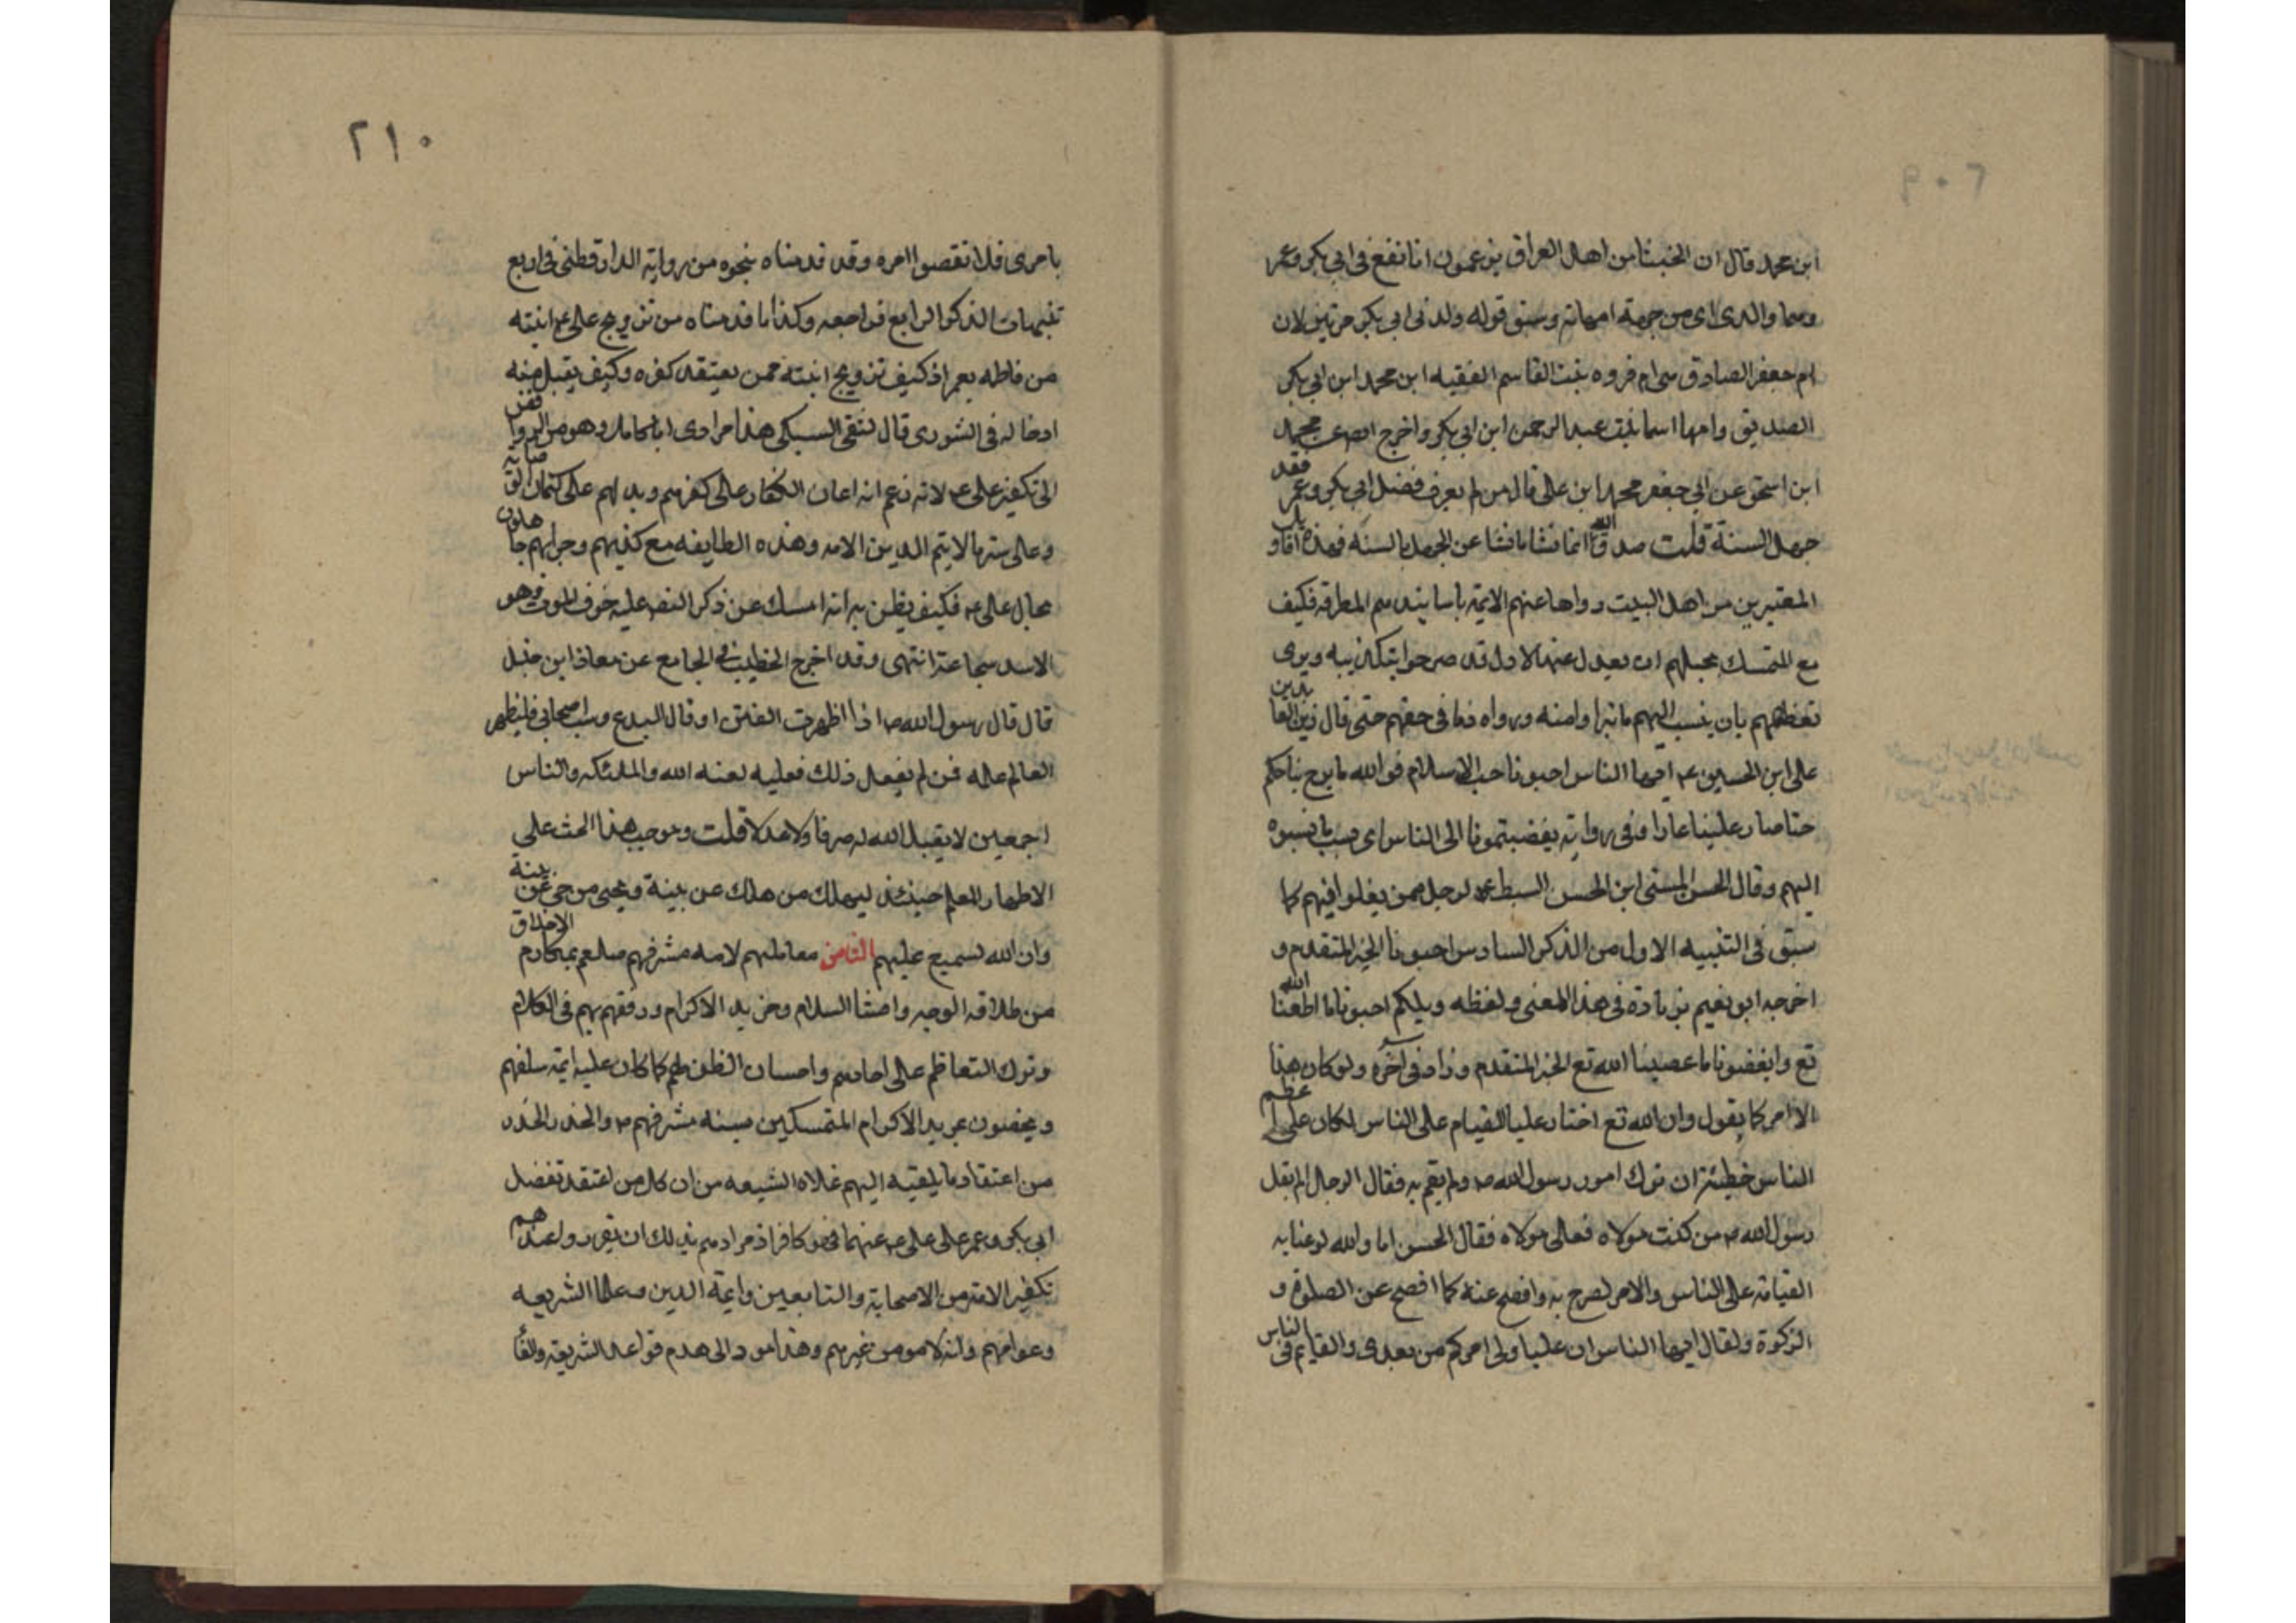 ٢٠٩
ابن محمد قال ان الخبثا من اهل العراق يزعمون انا نقع في ابي بكر وعمر
وهما والدى اى من جهة امهاته وسبق قوله ولدنى ابى بكر مرتين لان
ام جعفر الصادق هى ام فروه بنت القاسم الفقيه ابن محمد ابن ابى بكر
الصديق وامها اسما بنت عبد الرحمن ابن ابى بكر واخرج ايضا عن محمد
ابن اسحق عن ابى جعفر محمد ابن على قال من لم يعرف فضل ابى بكر وعمر فقد
جهل السنة قلت صدق والله انما نشا ما نشا عن الجهل بالسنة فهذه اقاويل
المعتبرين من اهل البيت رواها عنهم الايمة باسانيدهم المطرقه فكيف
مع المتمسك بحبلهم ان يعدل عنها لاول قد صرحوا بتكذيبه ويرى
تعظيمهم بان ينسب اليهم ما تبراوا منه ورواه ذما فى حقهم حتى قال زين العابدين
على ابن الحسين ع ايها الناس احبونا حب الاسلام فوالله ما برح بنا حبكم
حتا صار علينا عارا وفى رواية بغضبتمونا الى الناس اى بسبب ما نسبوه
اليهم وقال الحسن المسنى ابن الحسن السبط ع لرجل ممن يغلوا فيهم كما
سبق فى التنبيه الاول من الذكر السادس احبونا الخبر المتقدم و
اخرجه ابو نعيم بزيادة فى هذا المعنى ولفظه ويلكم احبونا ما اطعنا الله
تع وابغضونا ما عصينا الله تع الخبر المتقدم وزاد فى آخره ولو كان هذا
الا امر كما يقول وان الله تع اختار عليا للقيام على الناس لكان على اعظم
الناس خطيئة ان ترك امور رسول الله ص ولم يقم به فقال الرجل الم يقل
رسول الله ص من كنت مولاه فعلى مولاه فقال الحسن اما والله لو عنا به
القيامة على الناس والامر لصرح به وافصح عنه كما افصح عن الصلوة و
الزكوة ولقال ايها الناس ان عليا ولى امركم من بعدى والقايم فى الناس
٢١٠
بامرى فلا تقصوا امره وقد قدمناه بنحوه من رواية الدارقطنى فى اربع
تنبيهات الذكر الرابع فراجعه وكذا ما قدمناه من تزويج على ع ابنته
من فاطمه بعمر اذ كيف تزويج ابنته ممن يعتقد كفره وكيف يقبل منه
ادخاله فى الشورى قال التقى السبكى هذا مرادى ابا كامل وهو من الروافض
الى تكفير على ع لانه زعم انه اعان الكفار على كفرهم وبدلهم على كتمان القرابة
وعلى سترها لا يتم الدين الامه وهذه الطايفه مع كذبهم وجراتهم جاهلون
بحال على ع فكيف يظن به انه امسك عن ذكر النص عليه خوف الموت وهو
الاسد شجاعة انتهى وقد اخرج الخطيب فى الجامع عن معاذ ابن جبل
قال قال رسول الله ص اذا اظهرت الفتن او قال البدع وسب اصحابى فليظهر
العالم علمه فمن لم يفعل ذلك فعليه لعنه الله والملئكه والناس
اجمعين لا يقبل الله له صرفا ولا عدلا قلت وموجب هذا الحث على
الاظهار للعلم حينئذ ليهلك من هلك عن بينة ويحيى من حى عن بينة
وان الله لسميع عليهم الثامن معاملتهم لامه مشرفهم صلعم بمكارم الاخلاق
من طلاقه الوجه وافشا السلام ومزيد الاكرام ورفقهم بهم فى الكلام
وترك التعاظم على احادهم واحسان الظن بهم كما كان عليه ايمه سلفهم
ويخصون بمزيد الاكرام المتمسكين بسنه مشرفهم ص والحذر الحذر
من اعتقاد ما يلقيه اليهم غلاه الشيعه من ان كل من اعتقد تفضل
ابى بكر وعمر على على ع عنهما فهو كافر اذ مرادهم بذلك ان يقرروا عندهم
تكفير الامه من الاصحابة والتابعين وايمة الدين وعلما الشريعه
وعوامهم وانه لا مومن غيرهم وهذا مود الى هدم قواعد الشريعه والغا